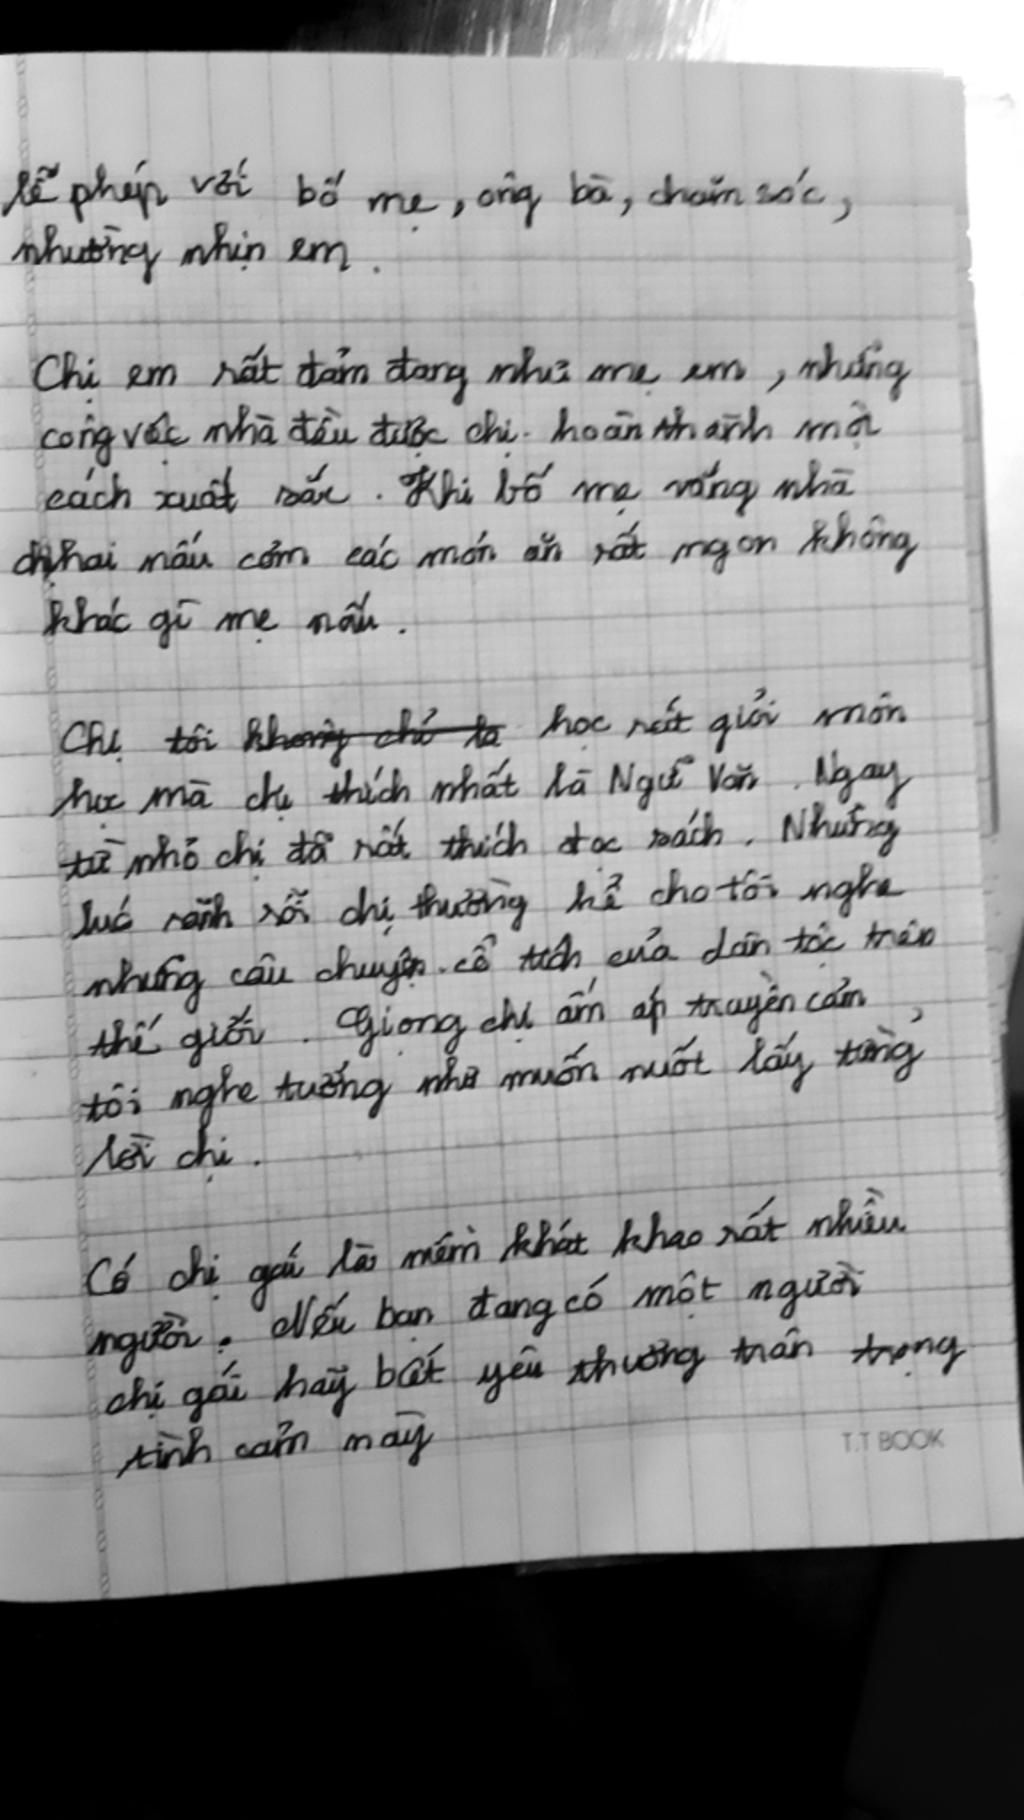 lễ phép với bố mẹ, ông bà, chăm sóc,
nhường nhịn em.
Chị em rất đảm đang như mẹ em, những
công véc nhà đều được chị. hoàn thành một
cách xuất sắc. Khi bố mẹ vắng nhà
chị hai nấu cơm các món ăn rất ngon không
khác gì mẹ nấu.
Chị tôi khong chỉ là học rất giỏi môn
học mà chị thích nhất là Ngữ Văn. Ngay
từ nhỏ chị đã rất thích đọc sách. Những
lúc rảnh rỗi chị thường kể cho tôi nghe
những câu chuyện cổ tích của dân tộc trên
thế giới. Giọng chị ấm áp truyền cảm,
tôi nghe tưởng như muốn nuốt lấy từng
lời chị.
Có chị gái là mềm khát khao rất nhiều
người. Nếu bạn đang có một người
chị gái hãy bết yêu thương trân trọng
tình cảm này
T.T BOOK